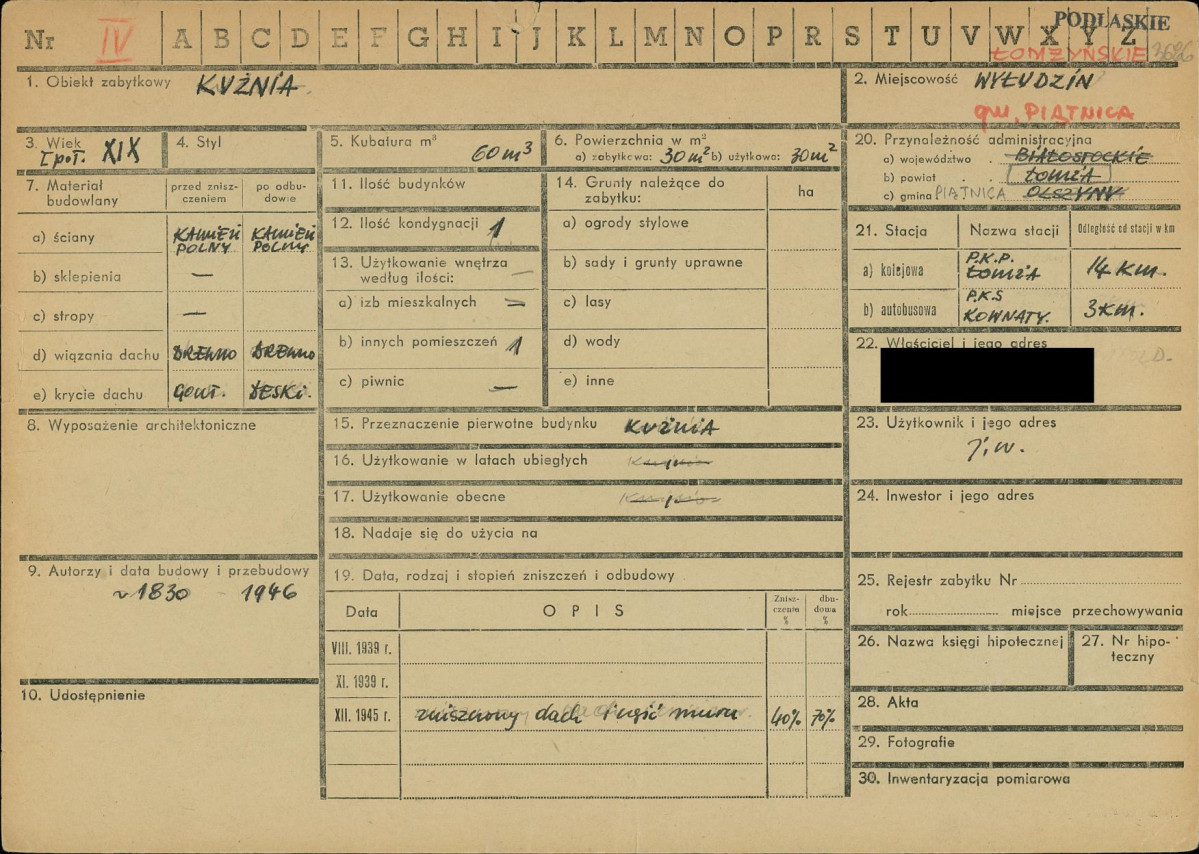 PODLASKIE
Nr IV A B C D E F G H I J K L M N O P R S T U V W X Y Z
ŁOMŻYŃSKIE 3686
1. Obiekt zabytkowy KUŹNIA
2. Miejscowość WYŁUDZIN
gm. PIĄTNICA
3. Wiek I poł. XIX
4. Styl
5. Kubatura m³ 60 m³
6. Powierzchnia w m²
a) zabytkowa: 30 m² b) użytkowa: 30 m²
20. Przynależność administracyjna
a) województwo BIAŁOSTOCKIE
b) powiat ŁOMŻA
c) gmina PIĄTNICA OLSZYNY
7. Materiał budowlany
przed zniszczeniem
po odbudowie
a) ściany KAMIEŃ POLNY KAMIEŃ POLNY
b) sklepienia —
c) stropy —
d) wiązania dachu DRZEWO DRZEWO
e) krycie dachu GONT. DESKI.
8. Wyposażenie architektoniczne
9. Autorzy i data budowy i przebudowy
~1830 - 1946
10. Udostępnienie
11. Ilość budynków
12. Ilość kondygnacji 1
13. Użytkowanie wnętrza według ilości: —
a) izb mieszkalnych —
b) innych pomieszczeń 1
c) piwnic —
14. Grunty należące do zabytku:
ha
a) ogrody stylowe
b) sady i grunty uprawne
c) lasy
d) wody
e) inne
15. Przeznaczenie pierwotne budynku KUŹNIA
16. Użytkowanie w latach ubiegłych
17. Użytkowanie obecne
18. Nadaje się do użycia na
19. Data, rodzaj i stopień zniszczeń i odbudowy
Data
OPIS
Zniszczenia %
dbudowa %
VIII. 1939 r.
XI. 1939 r.
XII. 1945 r. zniszczony dach i część muru 40% 70%
21. Stacja Nazwa stacji Odległość od stacji w km
a) kolejowa P.K.P. ŁOMŻA 14 km.
b) autobusowa P.K.S KOWNATY. 3 km.
22. Właściciel i jego adres
23. Użytkownik i jego adres
j.w.
24. Inwestor i jego adres
25. Rejestr zabytku Nr
rok miejsce przechowywania
26. Nazwa księgi hipotecznej
27. Nr hipoteczny
28. Akta
29. Fotografie
30. Inwentaryzacja pomiarowa